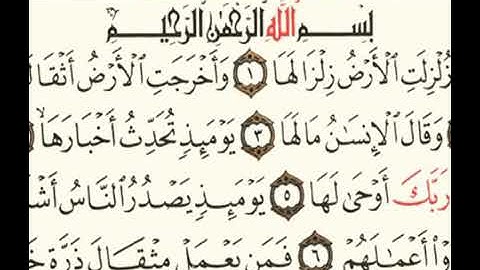 بِسْمِ اللَّهِ الرَّحْمَٰنِ الرَّحِيمِ
زُلْزِلَتِ الْأَرْضُ زِلْزَالَهَا ١ وَأَخْرَجَتِ الْأَرْضُ أَثْقَالَ
وَقَالَ الْإِنسَانُ مَا لَهَا ٣ يَوْمَئِذٍ تُحَدِّثُ أَخْبَارَهَا
رَبَّكَ أَوْحَىٰ لَهَا ٥ يَوْمَئِذٍ يَصْدُرُ النَّاسُ أَشْ
وْا أَعْمَالَهُمْ ٦ فَمَن يَعْمَلْ مِثْقَالَ ذَرَّةٍ خَ